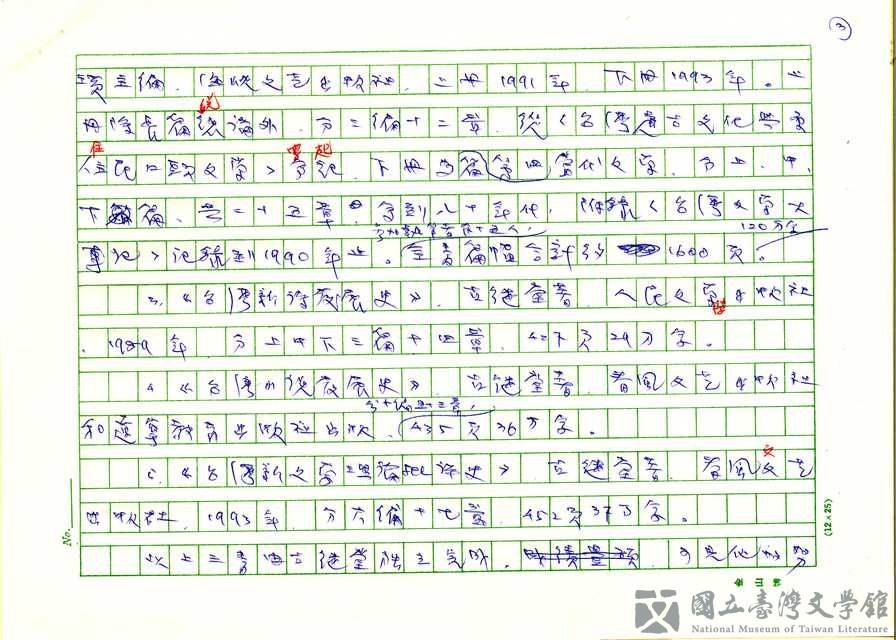 ③
主編．海峽文藝出版社．上冊1991年．下冊1993年。上
冊除長篇總論外．分三編十二章．從〈台灣遠古文化與
住民口頭文學〉寫起．下冊為第四當代文學．分上．中．
下編．共二十五章．寫到八十年代，附錄〈台灣文學大
事記〉記錄到1990年止。全書篇幅合計約1600頁。120萬字
3.《台灣新詩發展史》．古繼堂著．人民文學出版社
．1989年．分上中下三編十四章．427頁29萬字。
4.《台灣小說發展史》．古繼堂著．春風文藝出版社
和遼寧教育出版社出版．435頁36萬字。
《台灣新文學理論批評史》．古繼堂著．春風文藝
出版社．1993年．分六編十七章．452頁37萬字。
以上三書由古繼堂獨立完成．
No.
(12×25)
國立臺灣文學館
National Museum of Taiwan Literature